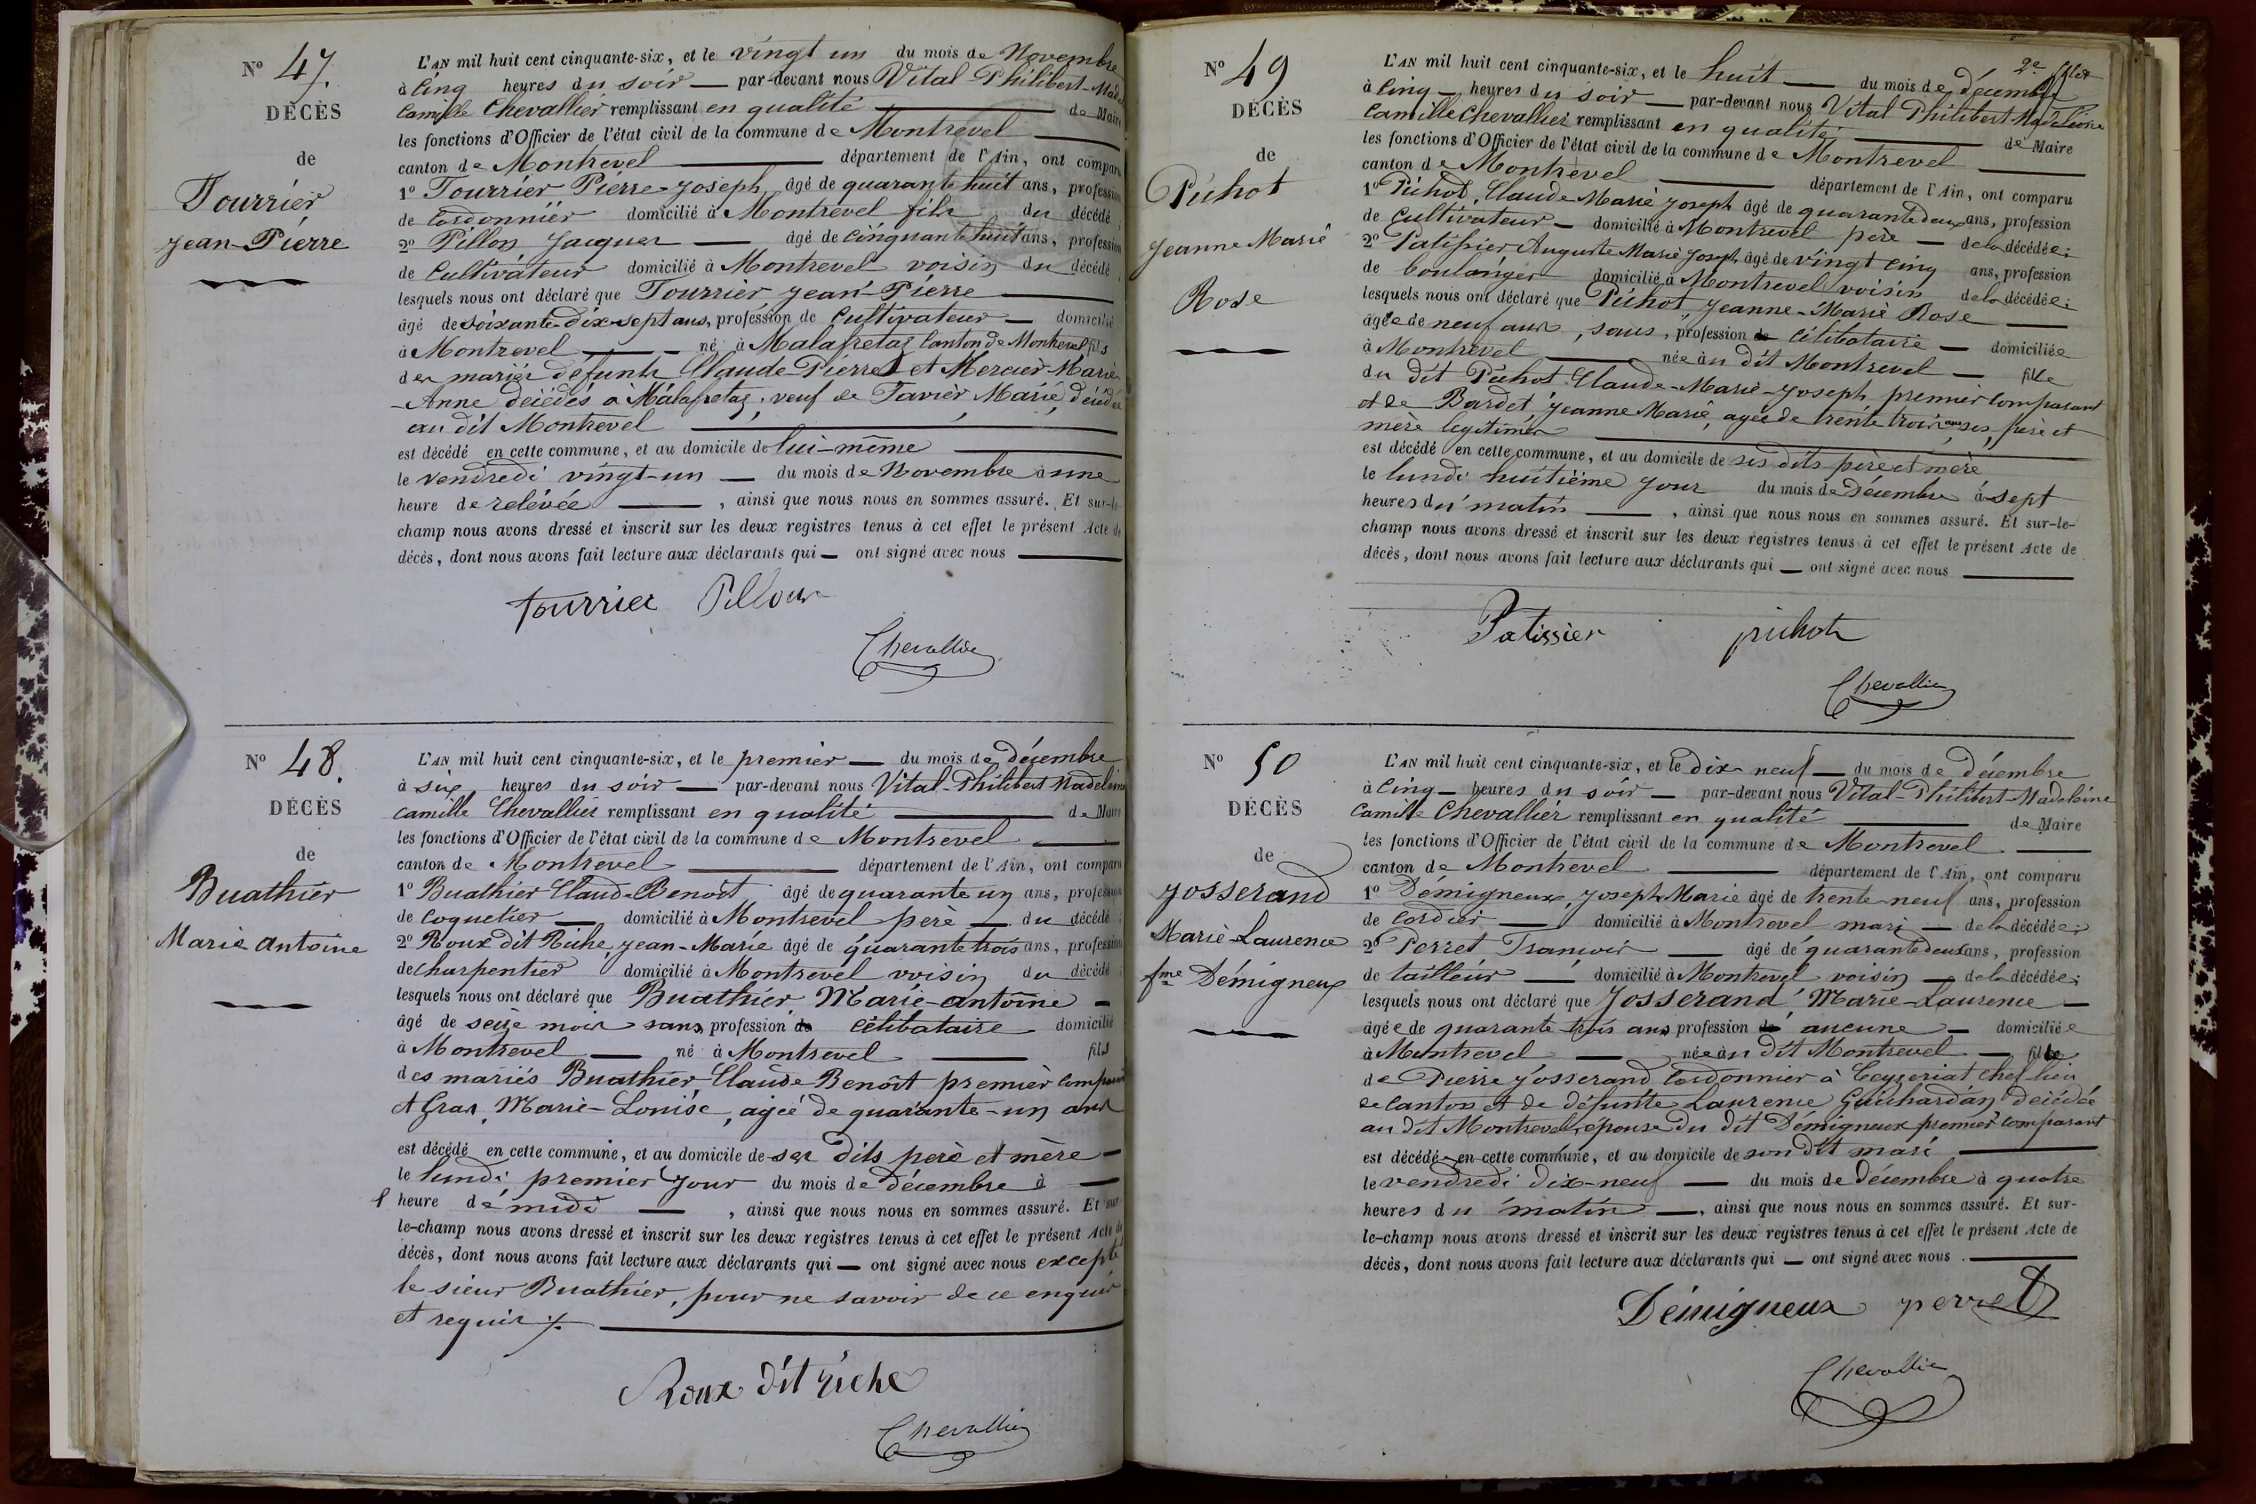 Nº 47.
DÉCÈS
de
Tourrier
Jean-Pierre
L'AN mil huit cent cinquante-six, et le vingt un du mois de Novembre
à cinq heures du soir — par-devant nous Vital Philibert-Mad
Camille Chevallier remplissant en qualité — de Maire
les fonctions d'Officier de l'état civil de la commune de Montrevel
canton de Montrevel — département de l'Ain, ont comparu
1º Tourrier Pierre-Joseph âgé de quarante huit ans, profession
de Cordonnier domicilié à Montrevel fils du décédé
2º Pillon Jacques — âgé de cinquante huit ans, profession
de Cultivateur domicilié à Montrevel voisin du décédé
lesquels nous ont déclaré que Tourrier Jean-Pierre
âgé de soixante-dix-sept ans, profession de Cultivateur — domicilié
à Montrevel — né à Malafretaz Canton de Montrevel fils
des mariés défunts Claude-Pierre et Mercier Marie-
-Anne décédés à Malafretaz, veuf de Tavier Marie, décédée
au dit Montrevel
est décédé en cette commune, et au domicile de lui-même
le vendredi vingt-un — du mois de Novembre à une
heure de relevée —, ainsi que nous nous en sommes assuré. Et sur-le-
champ nous avons dressé et inscrit sur les deux registres tenus à cet effet le présent Acte de
décès, dont nous avons fait lecture aux déclarants qui — ont signé avec nous
tourrier Pillon
Chevallier
Nº 48.
DÉCÈS
de
Buathier
Marie antoine
L'AN mil huit cent cinquante-six, et le premier — du mois de décembre
à six heures du soir — par-devant nous Vital-Philibert Madeleine
Camille Chevallier remplissant en qualité — de Maire
les fonctions d'Officier de l'état civil de la commune de Montrevel
canton de Montrevel — département de l'Ain, ont comparu
1º Buathier Claude-Benoît âgé de quarante un ans, profession
de coquetier — domicilié à Montrevel père — du décédé
2º Roux dit Riche, Jean-Marie âgé de quarante trois ans, profession
de charpentier domicilié à Montrevel voisin du décédé
lesquels nous ont déclaré que Buathier Marie-antoine —
âgé de seize mois sans profession de célibataire domicilié
à Montrevel — né à Montrevel — fils
des mariés Buathier Claude Benoît premier comparant
et Gras, Marie-Louise, agée de quarante-un ans
est décédé en cette commune, et au domicile de ses dits père et mère —
le lundi premier jour du mois de décembre à —
heure de midi —, ainsi que nous nous en sommes assuré. Et sur-
le-champ nous avons dressé et inscrit sur les deux registres tenus à cet effet le présent Acte de
décès, dont nous avons fait lecture aux déclarants qui — ont signé avec nous excepté
le sieur Buathier, pour ne savoir de ce enquis
et requis
Roux dit riche
Chevallier
2e filet
Nº 49
DÉCÈS
de
Pichot
Jeanne Marie
Rose
L'AN mil huit cent cinquante-six, et le huit — du mois de décembre
à cinq — heures du soir — par-devant nous Vital Philibert Madeleine
Camille Chevallier remplissant en qualité — de Maire
les fonctions d'Officier de l'état civil de la commune de Montrevel
canton de Montrevel — département de l'Ain, ont comparu
1º Pichot, Claude Marie Joseph âgé de quarante deux ans, profession
de Cultivateur — domicilié à Montrevel père — de la décédée;
2º Patissier Auguste Marie Joseph âgé de vingt cinq ans, profession
de boulanger domicilié à Montrevel voisin de la décédée;
lesquels nous ont déclaré que Pichot, Jeanne-Marie Rose —
âgée de neuf ans, sans, profession de célibataire — domiciliée
à Montrevel — née au dit Montrevel — fille
du dit Pichot Claude-Marie-Joseph premier comparant
et de Bardet Jeanne Marie, agée de trente trois ans ses père et
mère légitimes
est décédé en cette commune, et au domicile de ses dits père et mère
le lundi huitième jour du mois de Décembre à sept
heures du matin —, ainsi que nous nous en sommes assuré. Et sur-le-
champ nous avons dressé et inscrit sur les deux registres tenus à cet effet le présent Acte de
décès, dont nous avons fait lecture aux déclarants qui — ont signé avec nous
Patissier pichot
Chevallier
Nº 50
DÉCÈS
de
Josserand
Marie-Laurence
fme Démigneux
L'AN mil huit cent cinquante-six, et le dix neuf — du mois de décembre
à cinq — heures du soir — par-devant nous Vital-Philibert-Madeleine
Camille Chevallier remplissant en qualité — de Maire
les fonctions d'Officier de l'état civil de la commune de Montrevel
canton de Montrevel — département de l'Ain, ont comparu
1º Démigneux, Joseph Marie âgé de trente-neuf ans, profession
de Cordier — domicilié à Montrevel mari — de la décédée;
2º Perret François — âgé de quarante deux ans, profession
de tailleur — domicilié à Montrevel voisin — de la décédée;
lesquels nous ont déclaré que Josserand Marie-Laurence —
âgée de quarante trois ans profession de aucune — domiciliée
à Montrevel — née au dit Montrevel — fille
de Pierre Josserand Cordonnier à Ceyzeriat chef lieu
de canton et de défunte Laurence Guichardan décédée
au dit Montrevel, épouse du dit Démigneux premier comparant
est décédé en cette commune, et au domicile de son dit mari
le vendredi dix-neuf — du mois de décembre à quatre
heures du matin —, ainsi que nous nous en sommes assuré. Et sur-
le-champ nous avons dressé et inscrit sur les deux registres tenus à cet effet le présent Acte de
décès, dont nous avons fait lecture aux déclarants qui — ont signé avec nous
Démigneux perret
Chevallier